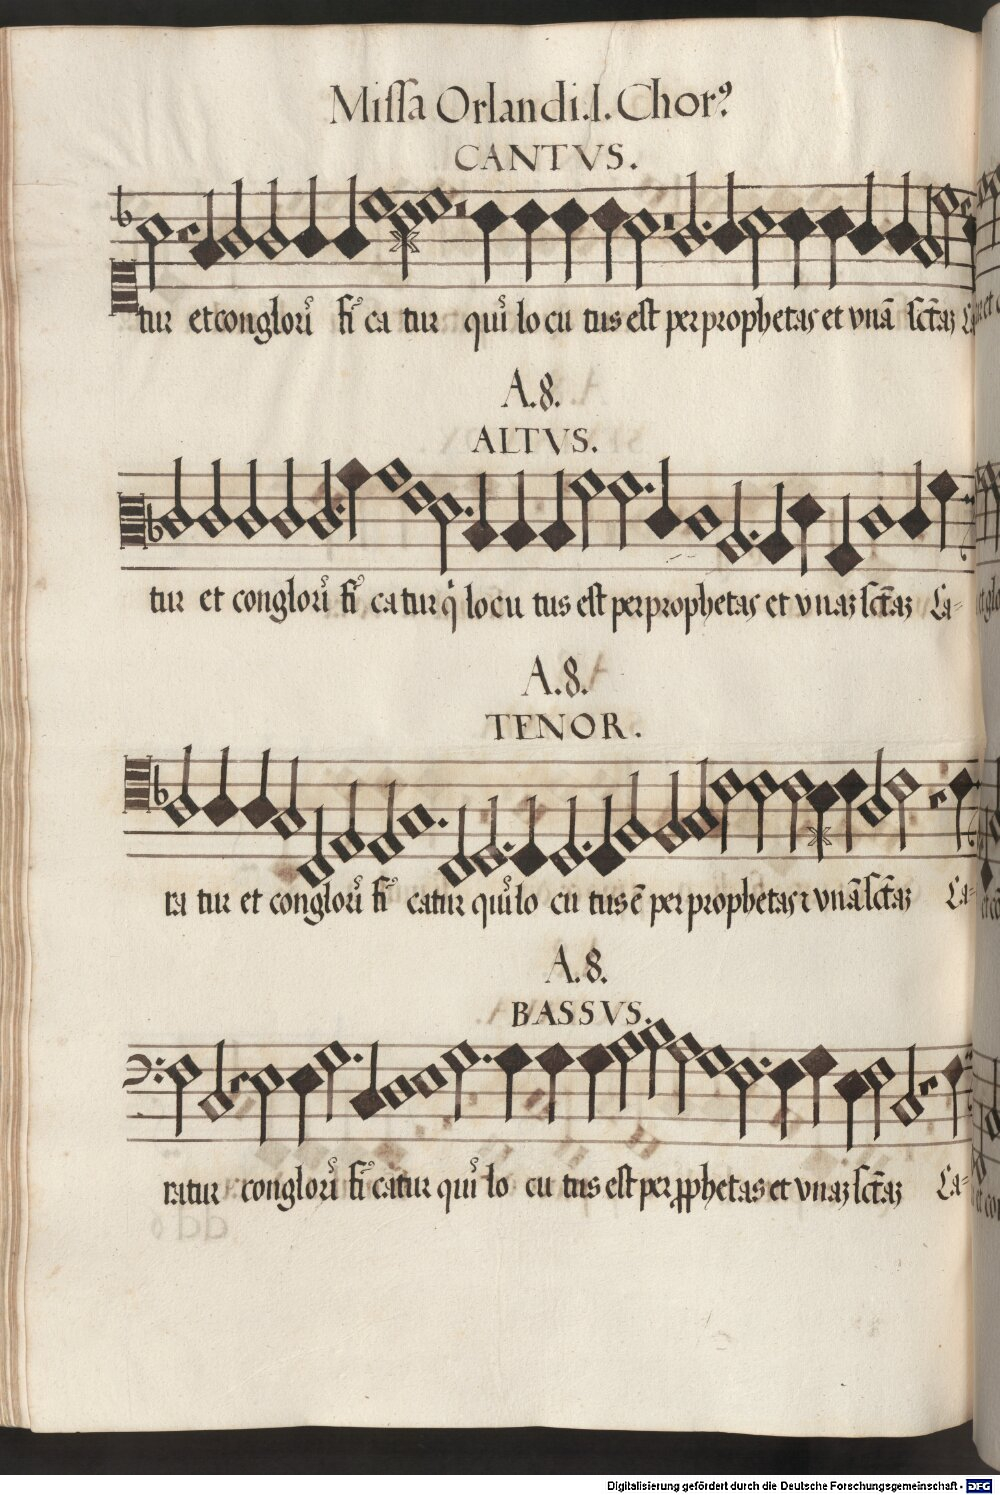 Missa Orlandi. I. Chorꝰ
CANTVS.
tur et conglori fi ca tur qui lo cu tus est per prophetas et vnā sctāȝ
A. 8.
ALTVS.
tur et conglori fi ca tur q̇ locu tus est per prophetas et vnaȝ sctāȝ Ca=
A. 8.
TENOR.
ra tur et conglori fi catur qui lo cu tus ē per prophetas ꞇ vnā sctāȝ Ca=
A. 8.
BASSVS.
ratur conglori fi catur qui lo cu tus est per ꝓphetas et vnaȝ sctāȝ Ca=
Digitalisierung gefördert durch die Deutsche Forschungsgemeinschaft - DFG